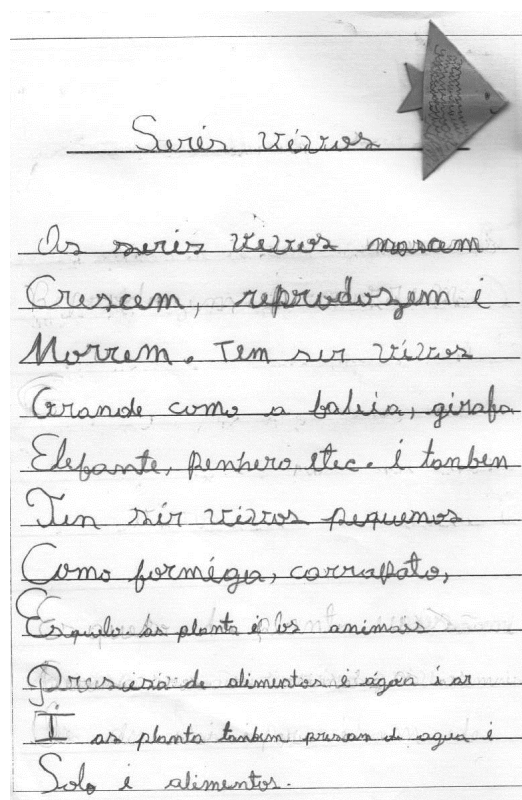 Seris vivros
Os seris vivros nascem
Crescem, reprodozem i
Morrem. Tem ser vivros
Grande como a baleia, girafa
Elefante, penhero, etec. i tanben
Ten sir vivros pequenos
Como forméga, carrapato,
Esquilo às planta i os animais
Presisa de alimentos i ágau i ar
I as planta tanbem presam de agua i
Solo i alimentos.